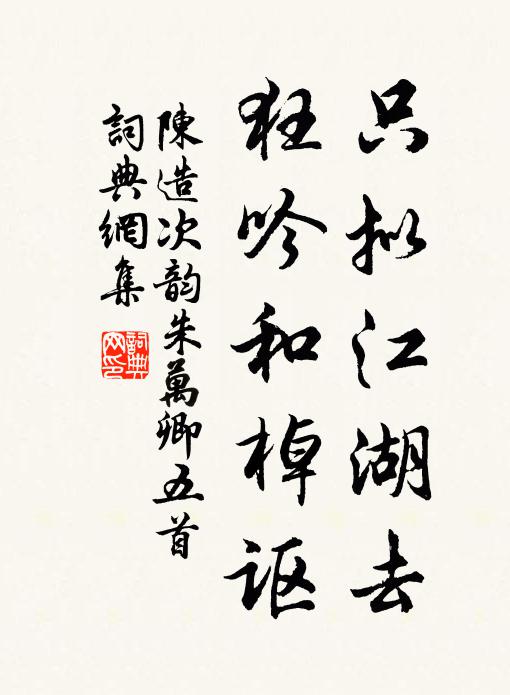 只拟江湖去
狂吟和棹讴
陳造次韵朱萬卿五首
詞典網集
詞典
网印